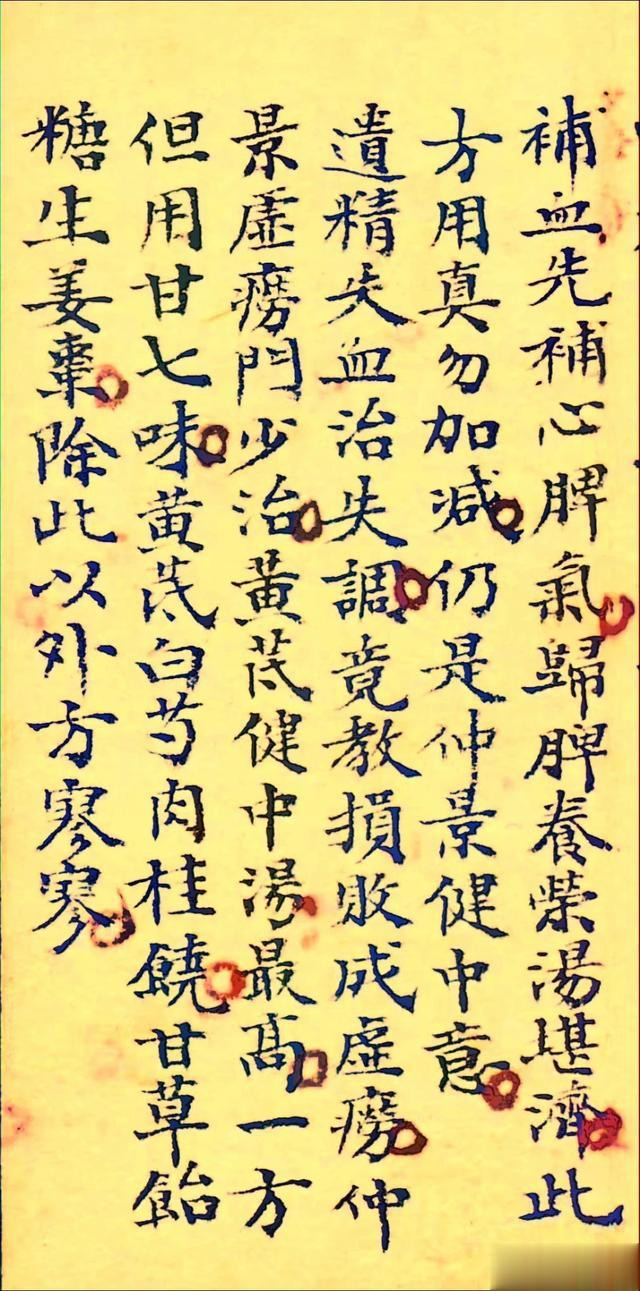 補血先補心脾氣歸脾養榮湯堪濟此
方用真勿加減仍是仲景健中意
遺精失血治失調竟教損敗成虛癆仲
景虛癆門少治黃芪健中湯最高一方
但用甘七味黃芪白芍肉桂饒甘草飴
糖生姜棗除此以外方寥寥